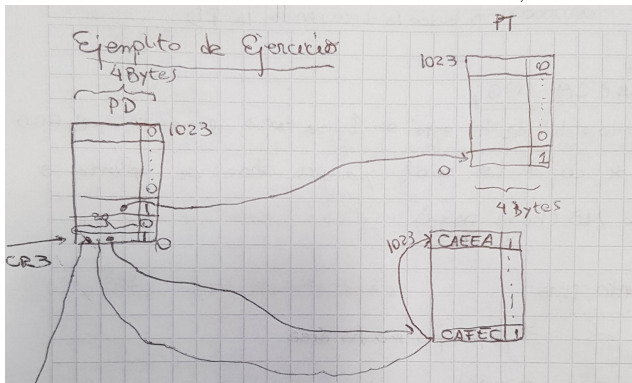 Ejemplito de Ejercicio
4 Bytes
PD
0 1023
0
1
0
1 0
CR3
PT
1023 0
0
1
0
4 Bytes
1023 CAEEA 1
CAFEC 1